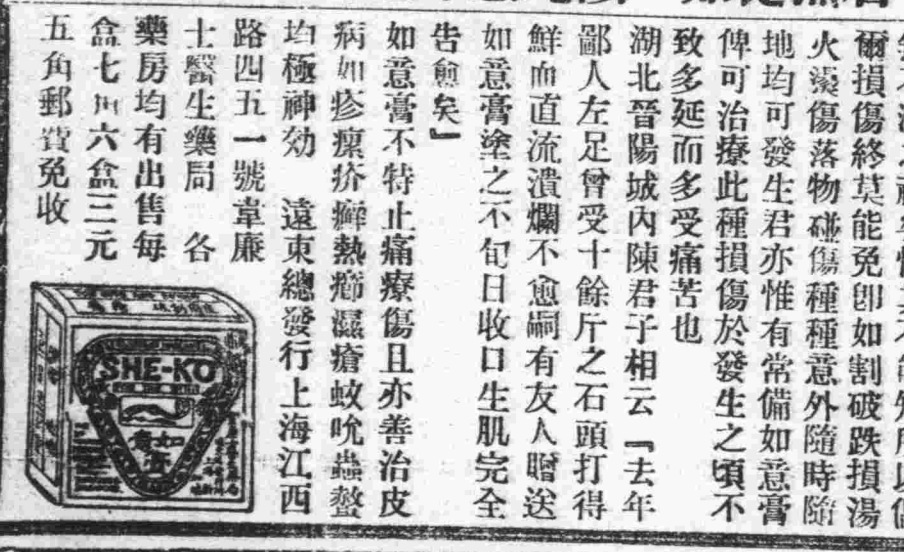 爾損傷終莫能免卽如割破跌損湯
火燙傷落物碰傷種種意外隨時隨
地均可發生君亦惟有常備如意膏
俾可治療此種損傷於發生之頃不
致多延而多受痛苦也
湖北晉陽城內陳君子相云『去年
鄙人左足曾受十餘斤之石頭打得
鮮血直流潰爛不愈嗣有友人贈送
如意膏塗之不旬日收口生肌完全
告愈矣』
如意膏不特止痛療傷且亦善治皮
病如疹瘰疥癬熱癤濕瘡蚊吮蟲螫
均極神効 遠東總發行上海江西
路四五一號韋廉
士醫生藥局 各
藥房均有出售每
盒七角六盒三元
五角郵費免收
SHE-KO
如意膏